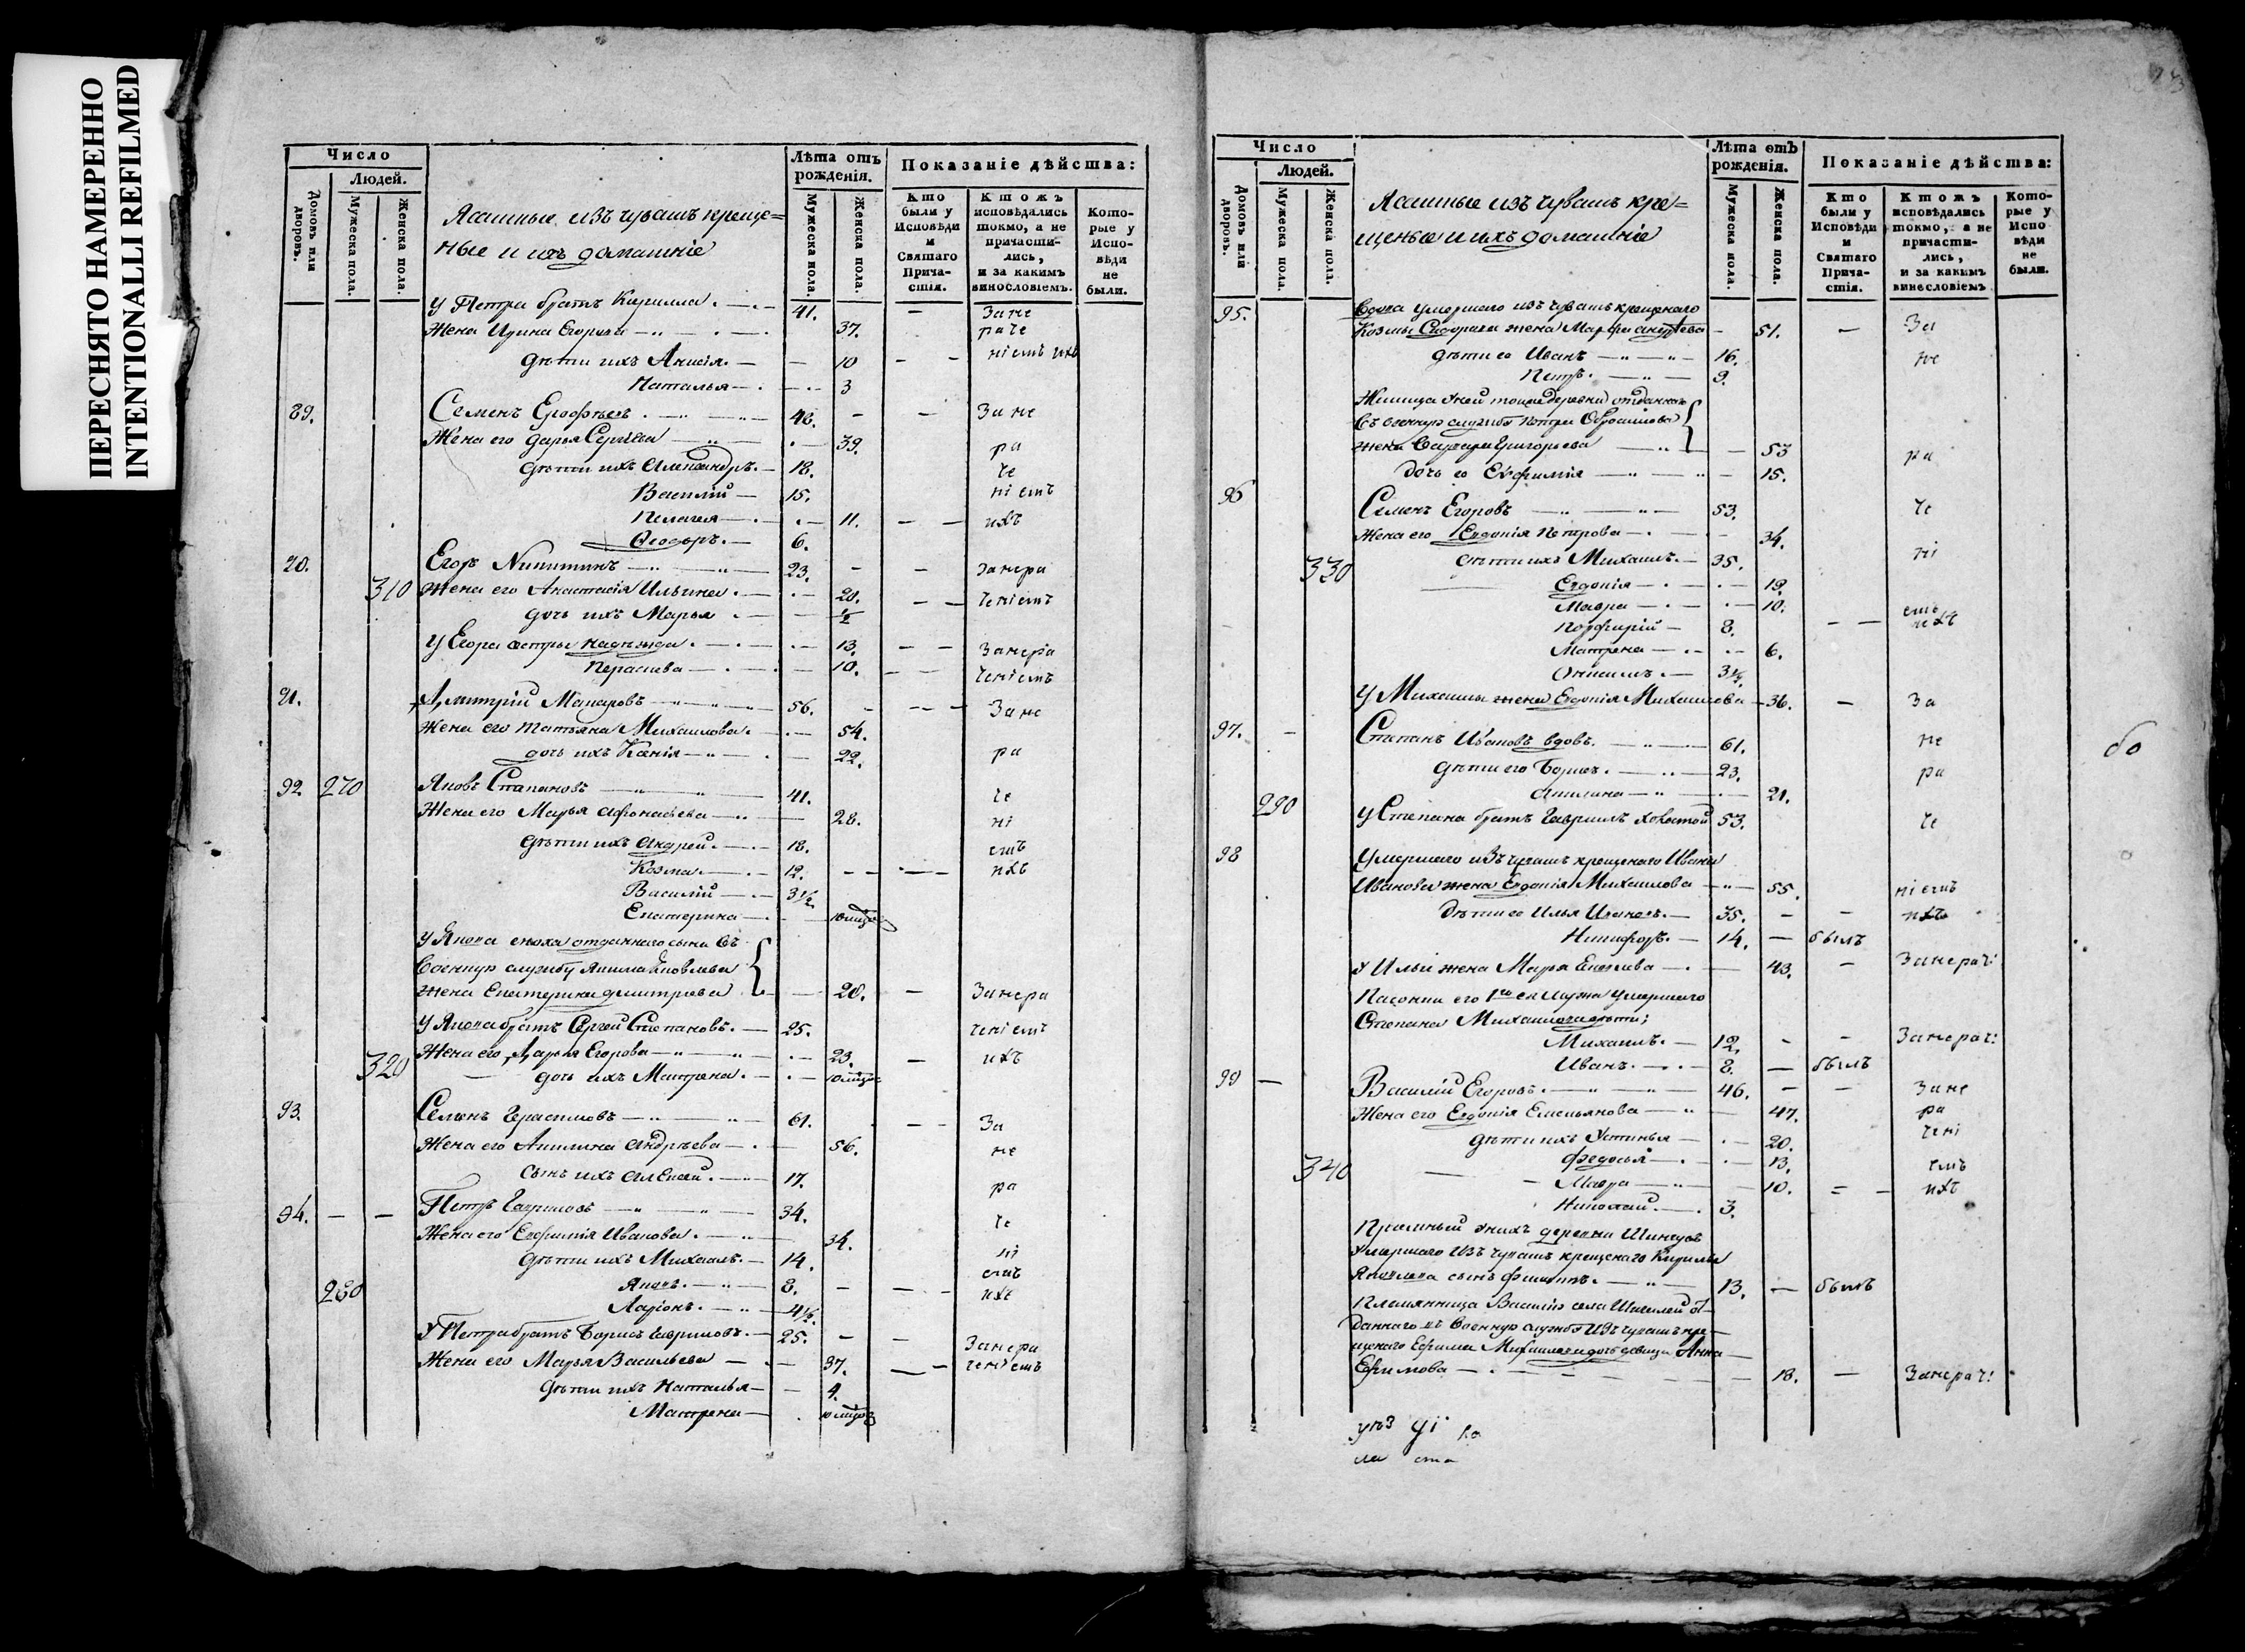 ПЕРЕСНЯТО НАМЕРЕННО
INTENTIONALLI REFILMED
Число
Людей.
Домовъ или дворовъ.
Мужеска пола.
Женска пола.
Ясашные изъ чувашъ креще=
ные и ихъ домашніе
Лѣта отъ рожденія.
Мужеска пола.
Женска пола.
Показаніе дѣйства:
Кто были у Исповѣди и Святаго Причастія.
Ктожъ исповѣдались токмо, а не причастились, и за какимъ винословіемъ.
Которые у Исповѣди не были.
У Петра братъ Кирилла 41. Зане
Жена Ирина Егорова 37. раче
дѣти ихъ Анисія 10 ніемъ ихъ
Наталья 3
89. Семенъ Ерофѣевъ 40. Зане
Жена его Дарья Сергѣева 39. ра
дѣти ихъ Александръ 18. че
Василій 15. ніемъ
Пелагея 11. ихъ
Ѳеодоръ 6.
90. Егоръ Никитинъ 23. Занера
310 Жена его Анастасія Ильина 20. ченіемъ
дочь ихъ Марья ½
У Егора сестры Надежда 13. Занера
Параскева 10. ченіемъ
91. Дмитрій Макаровъ 56. Зане
Жена его Татьяна Михаилова 54.
дочь ихъ Ксенія 22. ра
92. 270 Яковъ Степановъ 41. че
Жена его Марья Афонасьева 28. ні
дѣти ихъ Андрей 18. емъ
Козма 12. ихъ
Василій 3½
Екатерина
У Якова отданнаго сына въ
военную службу Якима Яковлева
жена Екатерина Дмитрева 20. Занера
У Якова братъ Сергей Степановъ 25. ченіемъ
320 Жена его Дарья Егорова 23. ихъ
дочь ихъ Матрена
93. Семенъ Герасимовъ 61. За
Жена его Акилина Андрѣева 56. не
сынъ ихъ Алексей 17. ра
94. Петръ Гавриловъ 34. че
Жена его Евфимія Иванова 34. ні
дѣти ихъ Михаилъ 14. емъ
280 Яковъ 8. ихъ
Ларіонъ 4½
У Петра братъ Борисъ Гавриловъ 25. Занера
Жена его Марья Васильева 37. ченіемъ
дѣти ихъ Наталья 4.
Матрена
Число
Людей.
Домовъ или дворовъ.
Мужеска пола.
Женска пола.
Ясашные изъ чувашъ кре=
щеные и ихъ домашніе
Лѣта отъ рожденія.
Мужеска пола.
Женска пола.
Показаніе дѣйства:
Кто были у Исповѣди и Святаго Причастія.
Ктожъ исповѣдались токмо, а не причастились, и за какимъ винесловіемъ
Которые у Исповѣди не были.
95. умершаго изъ чувашъ крещенаго
Козмы Сидорова жена Марфа 51. За
дѣти ея Иванъ 16. не
Петръ 9.
Жилица
въ военную службу Петра
жена Варвара Григорьева 53 ра
дочь ея Евфимія 15.
96 Семенъ Егоровъ 53. че
Жена его Евдокія Петрова 34.
330 дѣти ихъ Михаилъ 35. ні
Евдокія 19.
Мавра 10. емъ
Порфирій 8. ихъ
Матрена 6.
Онисимъ 3½
У Михаилы жена Евдокія Михаилова 36. За
97. Степанъ Ивановъ вдовъ 61. не
дѣти его Борисъ 23. ра
Акилина 21.
290 У Степана братъ Гавриилъ холостой 53. че
98 Умершаго изъ чувашъ крещенаго Ивана
Иванова жена Евдокія Михаилова 55. ніемъ
дѣти ея Илья Ивановъ 35. ихъ
Никифоръ 14. былъ
У Ильи жена Марья 43. Занерач:
Пасынки его 1го ея мужа умершаго
Степана Михаилова дѣти;
Михаилъ 12. Занерач:
Иванъ 8. былъ
99 Василій Егоровъ 46. Зане
Жена его Евдокія Емельянова 47. ра
дѣти ихъ Устинья 20. чені
340 Федосья 13. емъ
Мавра 10. ихъ
Николай 3.
Пріемный деревни
умершаго изъ чувашъ крещенаго Кирилы
Яковлева сынъ Филиппъ 13. былъ
Племянница Василію села от=
даннаго въ военную службу изъ чувашъ кре=
щенаго Ефима Михаилова дочь девица Анна
Ефимова 18. Занерач:
бо